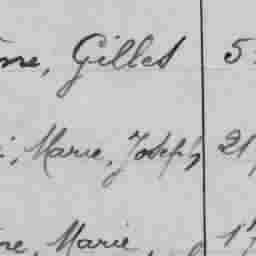 me, Gilles 5
i, Marie, Joseph 21
ne, Marie, 17